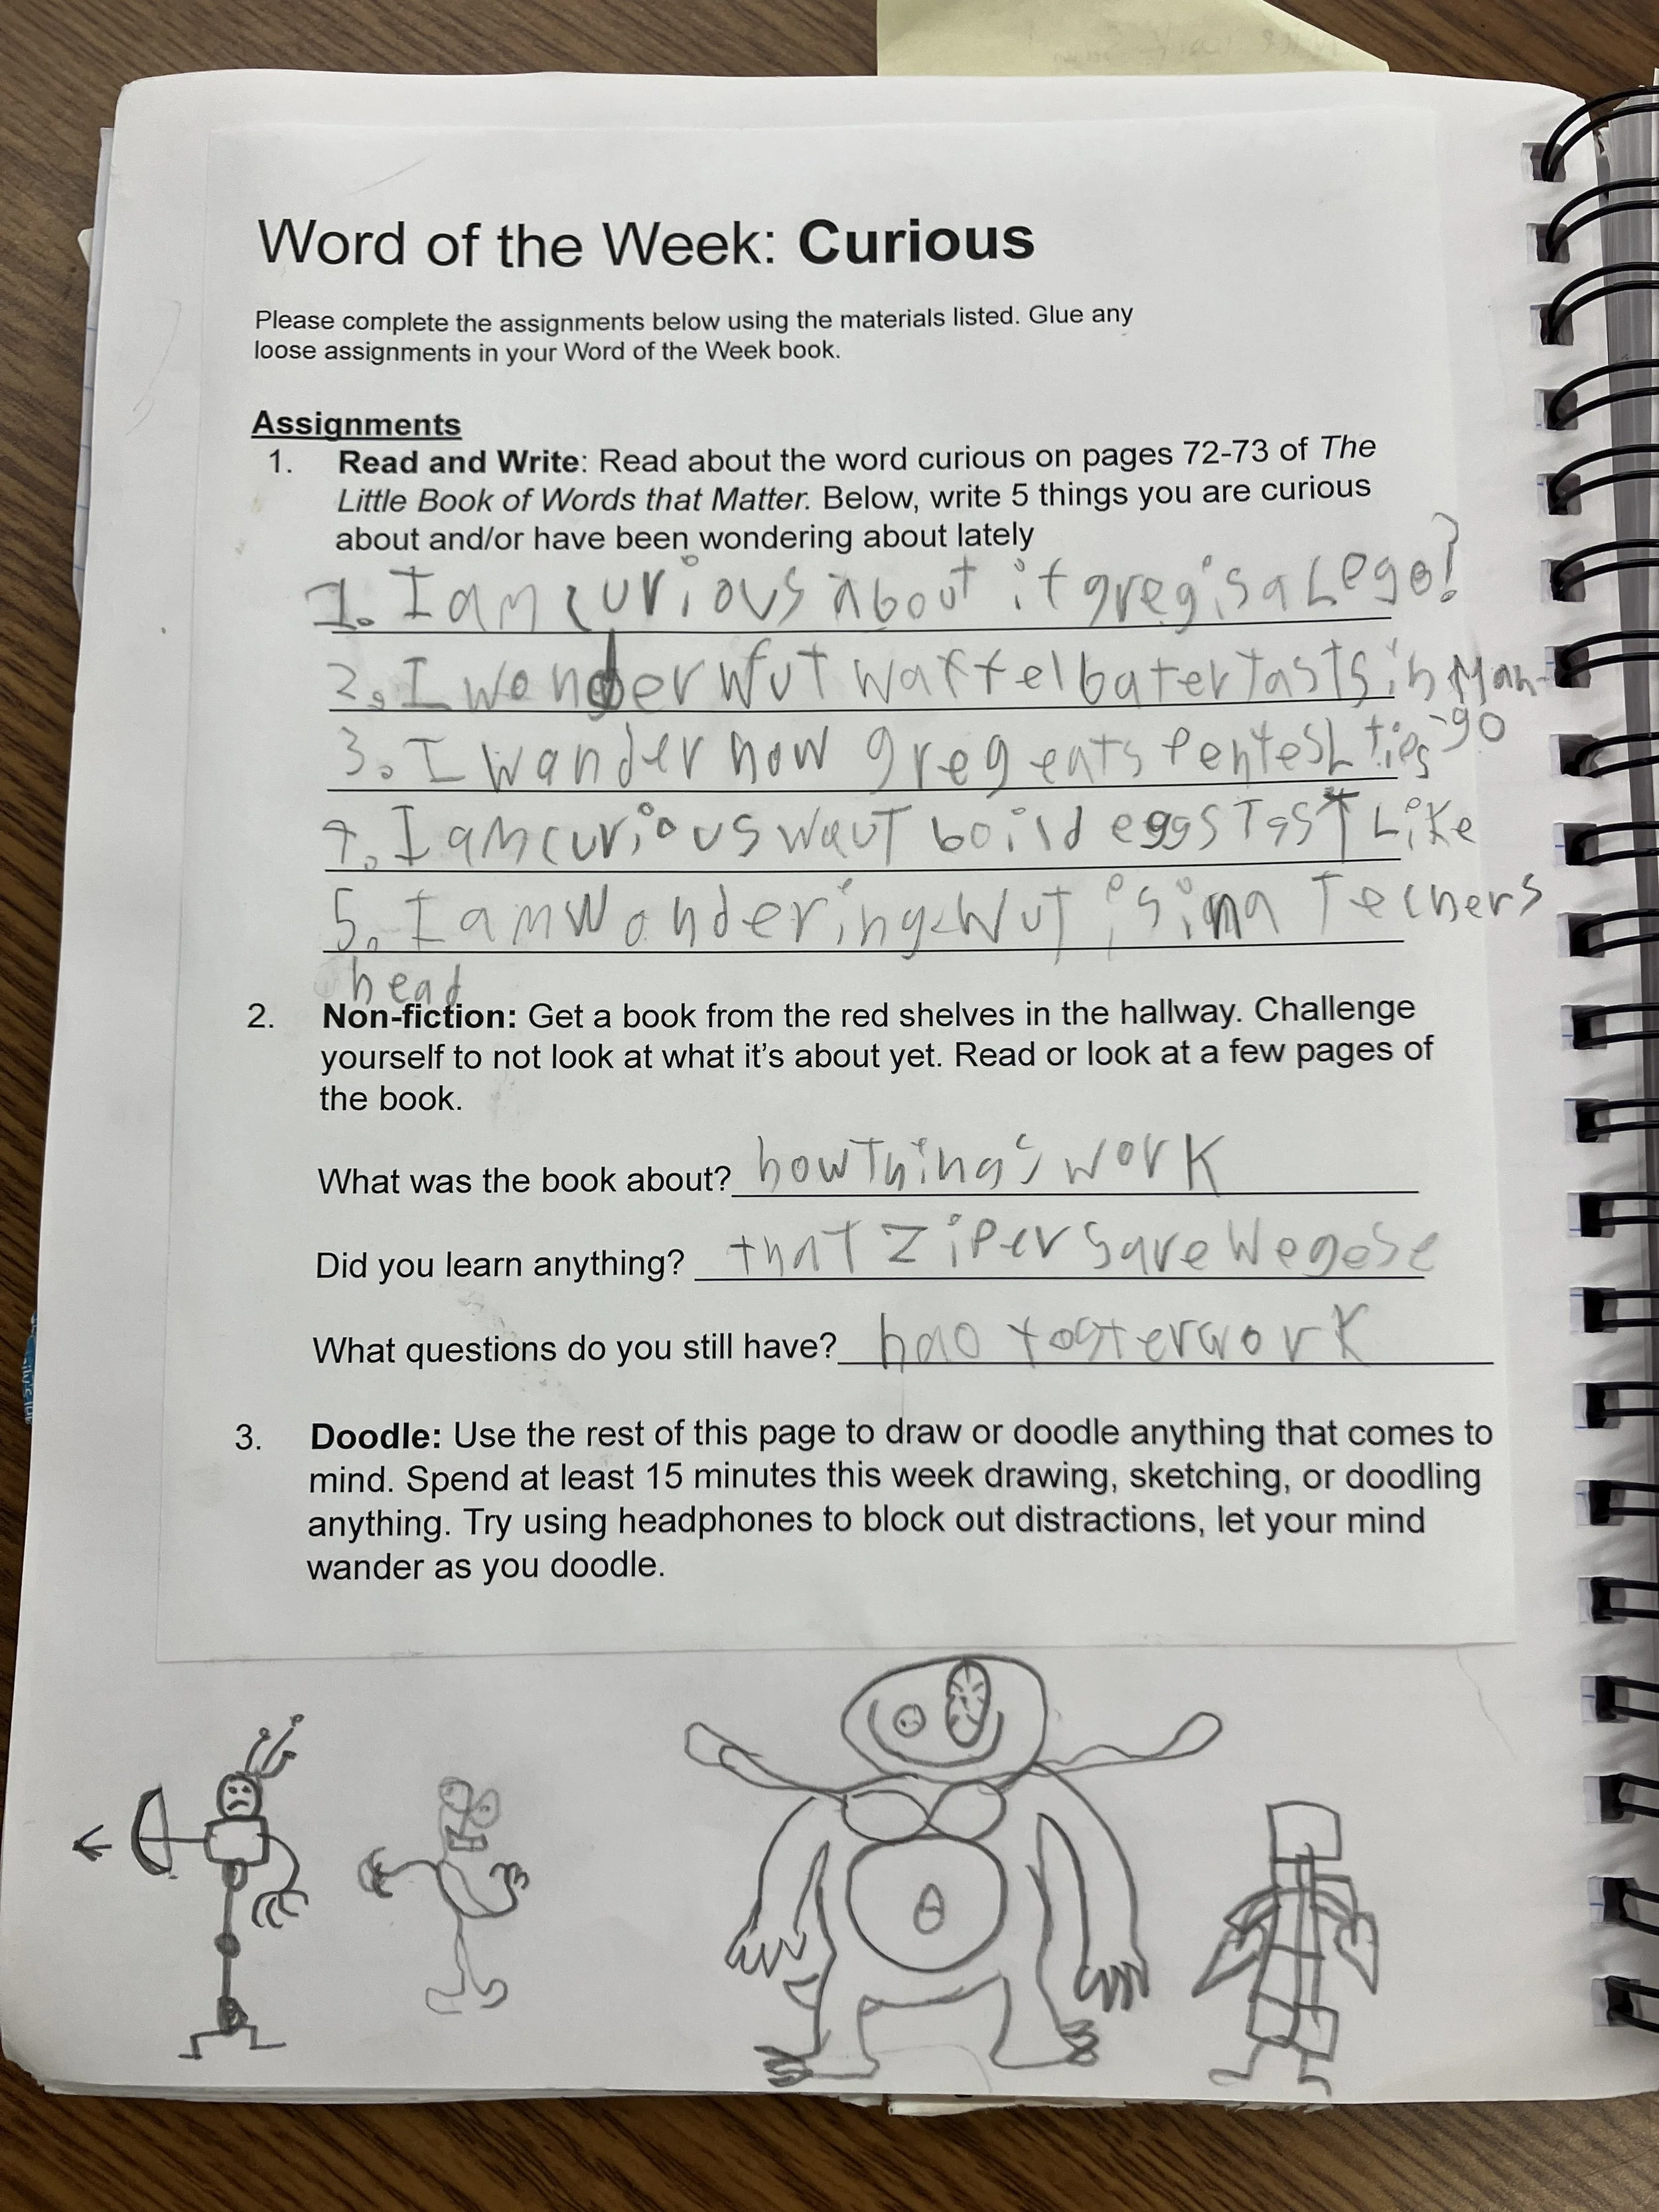 Word of the Week: Curious
Please complete the assignments below using the materials listed. Glue any
loose assignments in your Word of the Week book.
Assignments
1. Read and Write: Read about the word curious on pages 72-73 of The
Little Book of Words that Matter. Below, write 5 things you are curious
about and/or have been wondering about lately
1. I am curious about if greg is a Lego?
2. I wonder wut waffel bater tasts in Man-
-go
3. I wander how greg eats penfesh tips
4. I am curious waut boild eggs Tast Like
5. I am wondering wut is in a Techers
head
2. Non-fiction: Get a book from the red shelves in the hallway. Challenge
yourself to not look at what it's about yet. Read or look at a few pages of
the book.
What was the book about? how Things work
Did you learn anything? that Zipers are Wegese
What questions do you still have? hao toster work
3. Doodle: Use the rest of this page to draw or doodle anything that comes to
mind. Spend at least 15 minutes this week drawing, sketching, or doodling
anything. Try using headphones to block out distractions, let your mind
wander as you doodle.